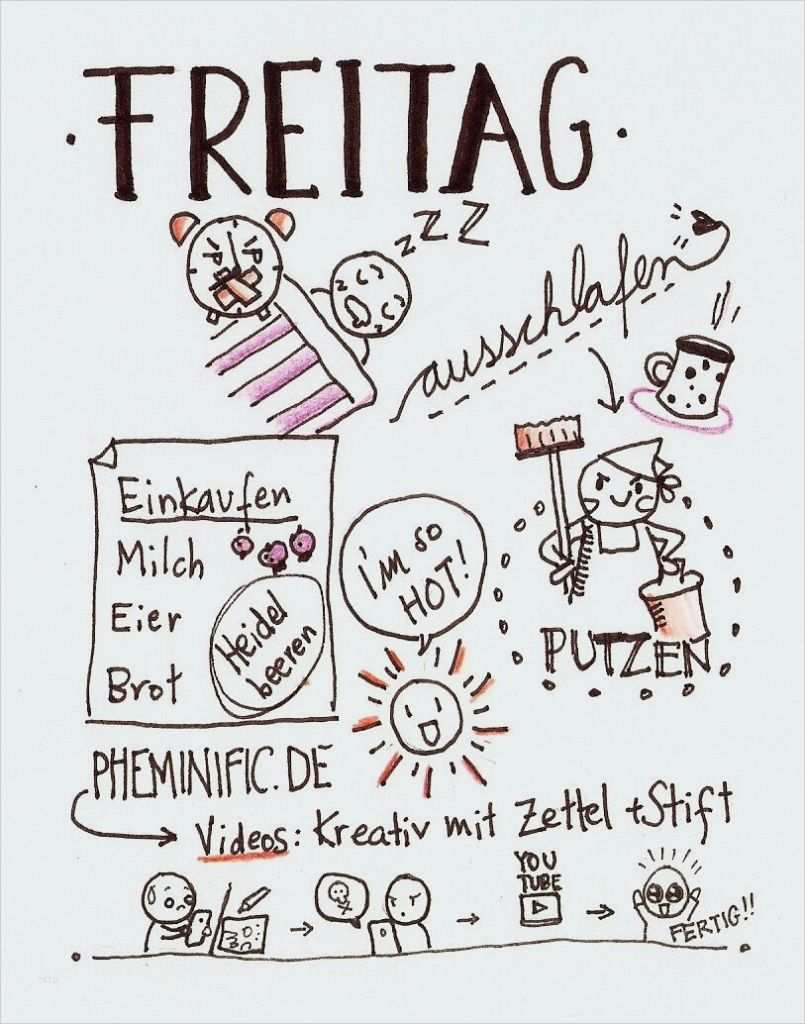 ·FREITAG·
zzZ
ausschlafen
Einkaufen
Milch
Eier
Brot
Heidel
beeren
I'm so
HOT!
PUTZEN
PHEMINIFIC.DE
Videos: Kreativ mit Zettel + Stift
YOU
TUBE
FERTIG!!